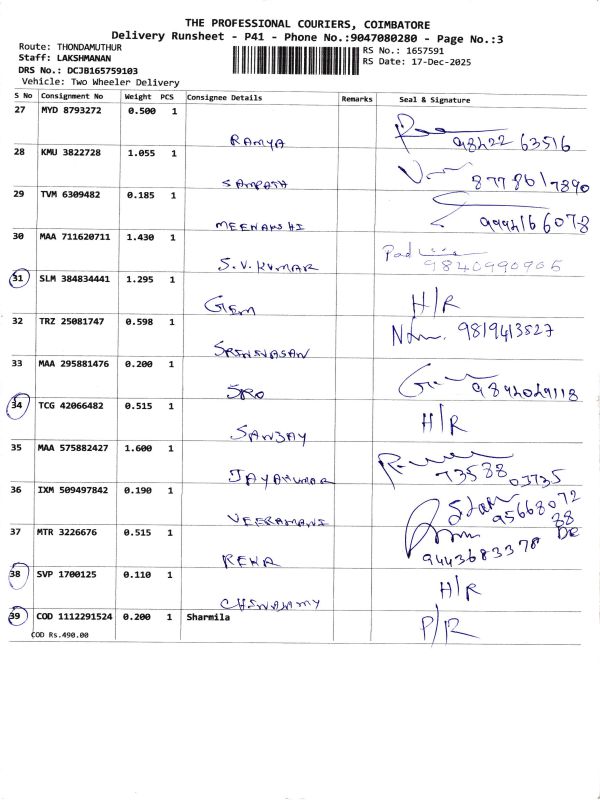 THE PROFESSIONAL COURIERS, COIMBATORE
Delivery Runsheet - P41 - Phone No.:9047080280 - Page No.:3
Route: THONDAMUTHUR
Staff: LAKSHMANAN
DRS No.: DCJB165759103
Vehicle: Two Wheeler Delivery
RS No.: 1657591
RS Date: 17-Dec-2025
S No Consignment No Weight PCS Consignee Details Remarks Seal & Signature
27 MYD 8793272 0.500 1
RAMYA 98422 63516
28 KMU 3822728 1.055 1
SAMPATH 8778617890
29 TVM 6309482 0.185 1
MEENAKSHI 9994166078
30 MAA 711620711 1.430 1
S.V.KUMAR 9840990905
31 SLM 384834441 1.295 1
GEM H/R
32 TRZ 25081747 0.598 1
SRINIVASAN 9819413527
33 MAA 295881476 0.200 1
SRO 9842029118
34 TCG 42066482 0.515 1
SANJAY H/R
35 MAA 575882427 1.600 1
JAYAKUMAR 73588 03735
36 IXM 509497842 0.190 1
VEERAMANI 95668072
88
37 MTR 3226676 0.515 1
REKA 9443683378
38 SVP 1700125 0.110 1
CHINSAMY H/R
39 COD 1112291524 0.200 1 Sharmila P/R
COD Rs.490.00